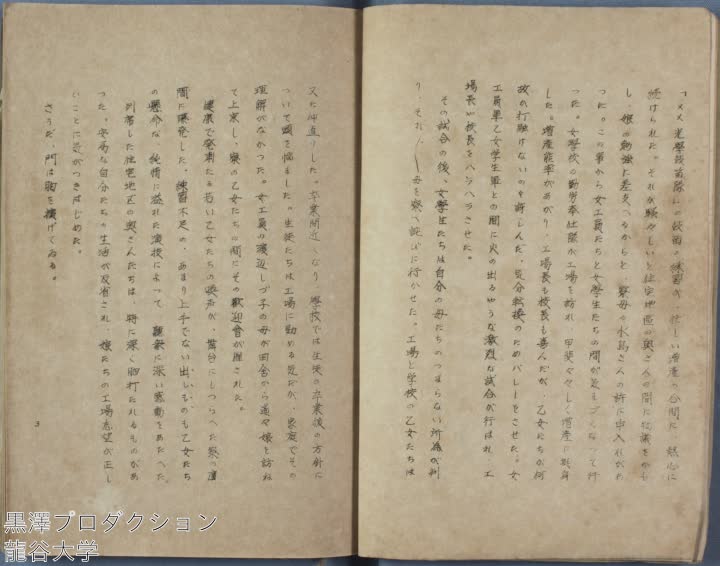 「××光學鼓笛隊」の鼓笛の練習が、忙しい増産の合間に、熱心に
続けられた。それが騒々しいと住宅地區の奥さんの間に物議をかも
し、娘の勉強に差支へるからと、寮母の水島さんの許に申入れがあ
つた。この事から女工員たちと女學生たちの間が気まづくなつて行
つた。女学校の勤労奉仕隊が工場を訪れ、甲斐々々しく増産に挺身
した。増産能率があがり、工場長も校長も喜んだが、乙女たちが何
故か打融けないのを訝しんだ。気分転換のためバレーをさせた。女
工員軍乙女学生軍との間に火の出るやうな激烈な試合が行はれ、工
場長や校長をハラハラさせた。
その試合の後、女學生たちは自分の母たちのつまらない所為が判
り、それ／＼母を寮へ詫びに行かせた。工場と学校の乙女たちは
又た仲直りした。卒業間近くなり、學校では生徒の卒業後の方針に
ついて頭を悩ました。生徒たちは工場に勤める気だが、家庭でその
理解がなかつた。女工員の磯辺しづ子の母が田舎から遥々娘を訪ね
て上京し、寮の乙女たちの間にその歓迎會が催された。
健康で溌剌たる若い乙女たちの喚声が、舞台にしつらへた寮の廣
間に爆発した。練習不足の、あまり上手でない出しものも乙女たち
の懸命な、純情に溢れた演技によつて、聽衆に深い感動をあたへた
列席した住宅地区の奥さんたちは、特に深く胸打たれるものがあ
つた。安易な自分たちの生活が反省され、娘たちの工場志望が正し
いことに気がつきはじめた。
さうだ、門は胸を擴げてゐる。
3
黒澤プロダクション
龍谷大学